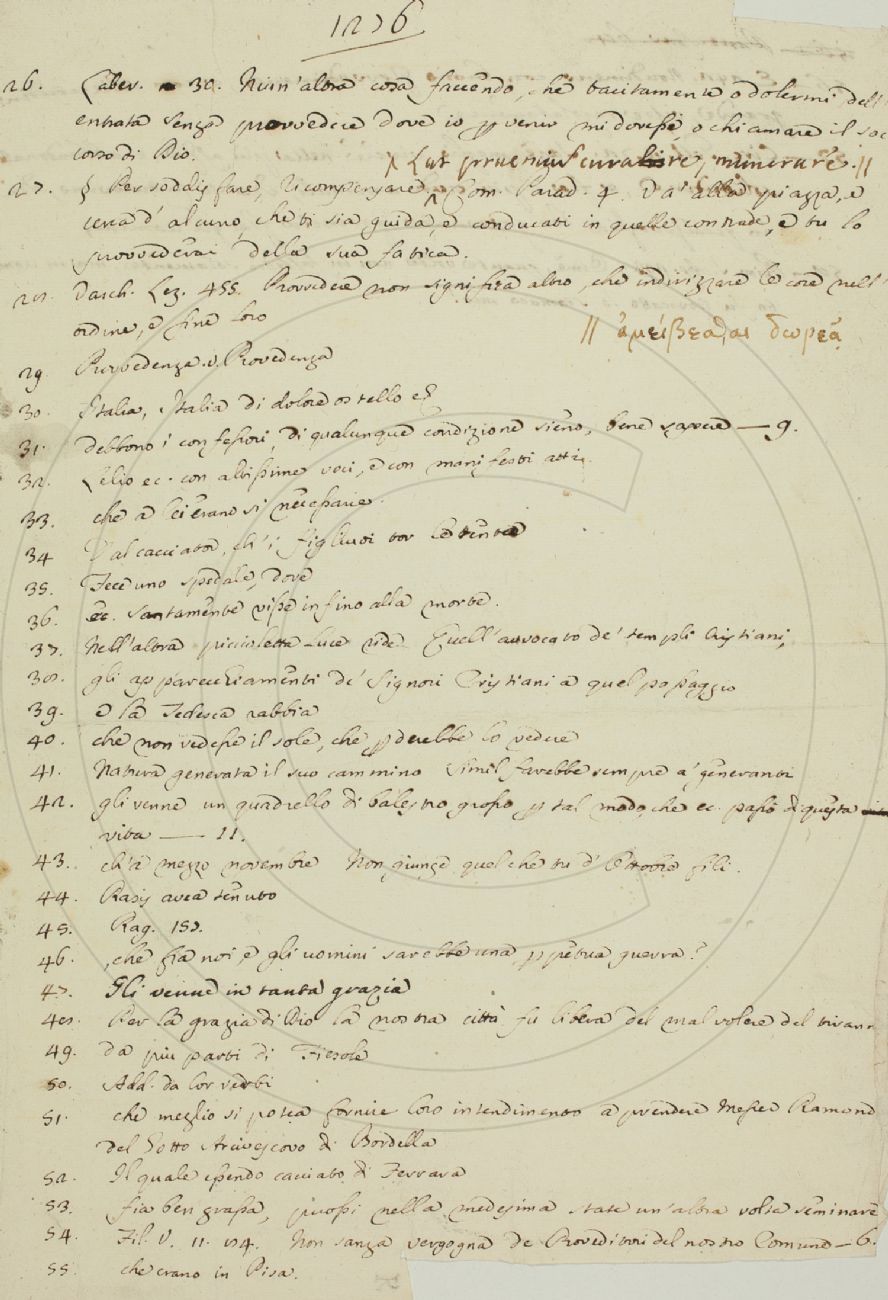 1276
26. Laber. 30. Niun'altra cosa facendo, che tacitamente o dolermi dell'
entrata senza provvedere dove io p venir mi dovesse, o chiamare il soc
corso di Dio.
λ Lat praemiis curare, munerare. //
27. § Per soddisfare, Ricompensare λ Com. Parad. 4. Va' alla piazza, e
cerca d'alcuno, che ti sia guida, e conducati in quelle contrade, e tu lo
provvederai della sua fatica.
28. Varch. Lez. 455. Provvedere non significa altro, che indirizzare le cose nell'
ordine, e fine loro
// ἀμείβεσθαι δωρεᾷ
29. Purvedenza. v. Provedenza
30. Italia, Italia di dolore ostello
31. debbono i confessori, di qualunque condizione sieno, bene sapere — 9.
32. Lelio ec. con altissime voci, e con manifesti atti
33. che a lei erano si necessarie.
34 Val cacciator, ch'i figliuoi tor
35. Fece uno spedale, dove
36. ec. santamente visse in fino alla morte.
37. Nell'altra piccioletta luce ride Quell'avvocato de' templi Cristiani,
38. gli apparecchiamenti de' Signori Cristiani a quel passaggio
39. e la Tedesca rabbia
40. che non vedesse il sole, che pderebbe lo vedere
41. Natura generata il suo cammino Simil farebbe sempre a' generanti
42. gli venne un quadrello di balestro grosso p tal modo, che ec. passò di questa
vita — 11.
43. ch'a mezzo novembre Non giunge quel che tu d'Ottobre fili.
44. Rasis avea tenuto
45. Rag. 157.
46. che fra noi, e gli uomini sarebbe una ppetua guerra?
47. Gli venne in tanta grazia
48. Per la grazia di Dio la nostra città fu libera del mal volere del tirann
49. da più parti di Fiesole
50. Add. da lor verbi
51. che meglio si potea fornire loro intendimento a prendere Messer Ramond
del Gotto Arcivescovo di Bordella
52. Il quale essendo cacciato di Ferrara
53. fia ben grassa, puossi nella medesima state un'altra volta seminare
54. Fil. V. 11. 134. Non sanza vergogna de' Proveditori del nostro Comuno — 6.
55. che erano in Pisa.